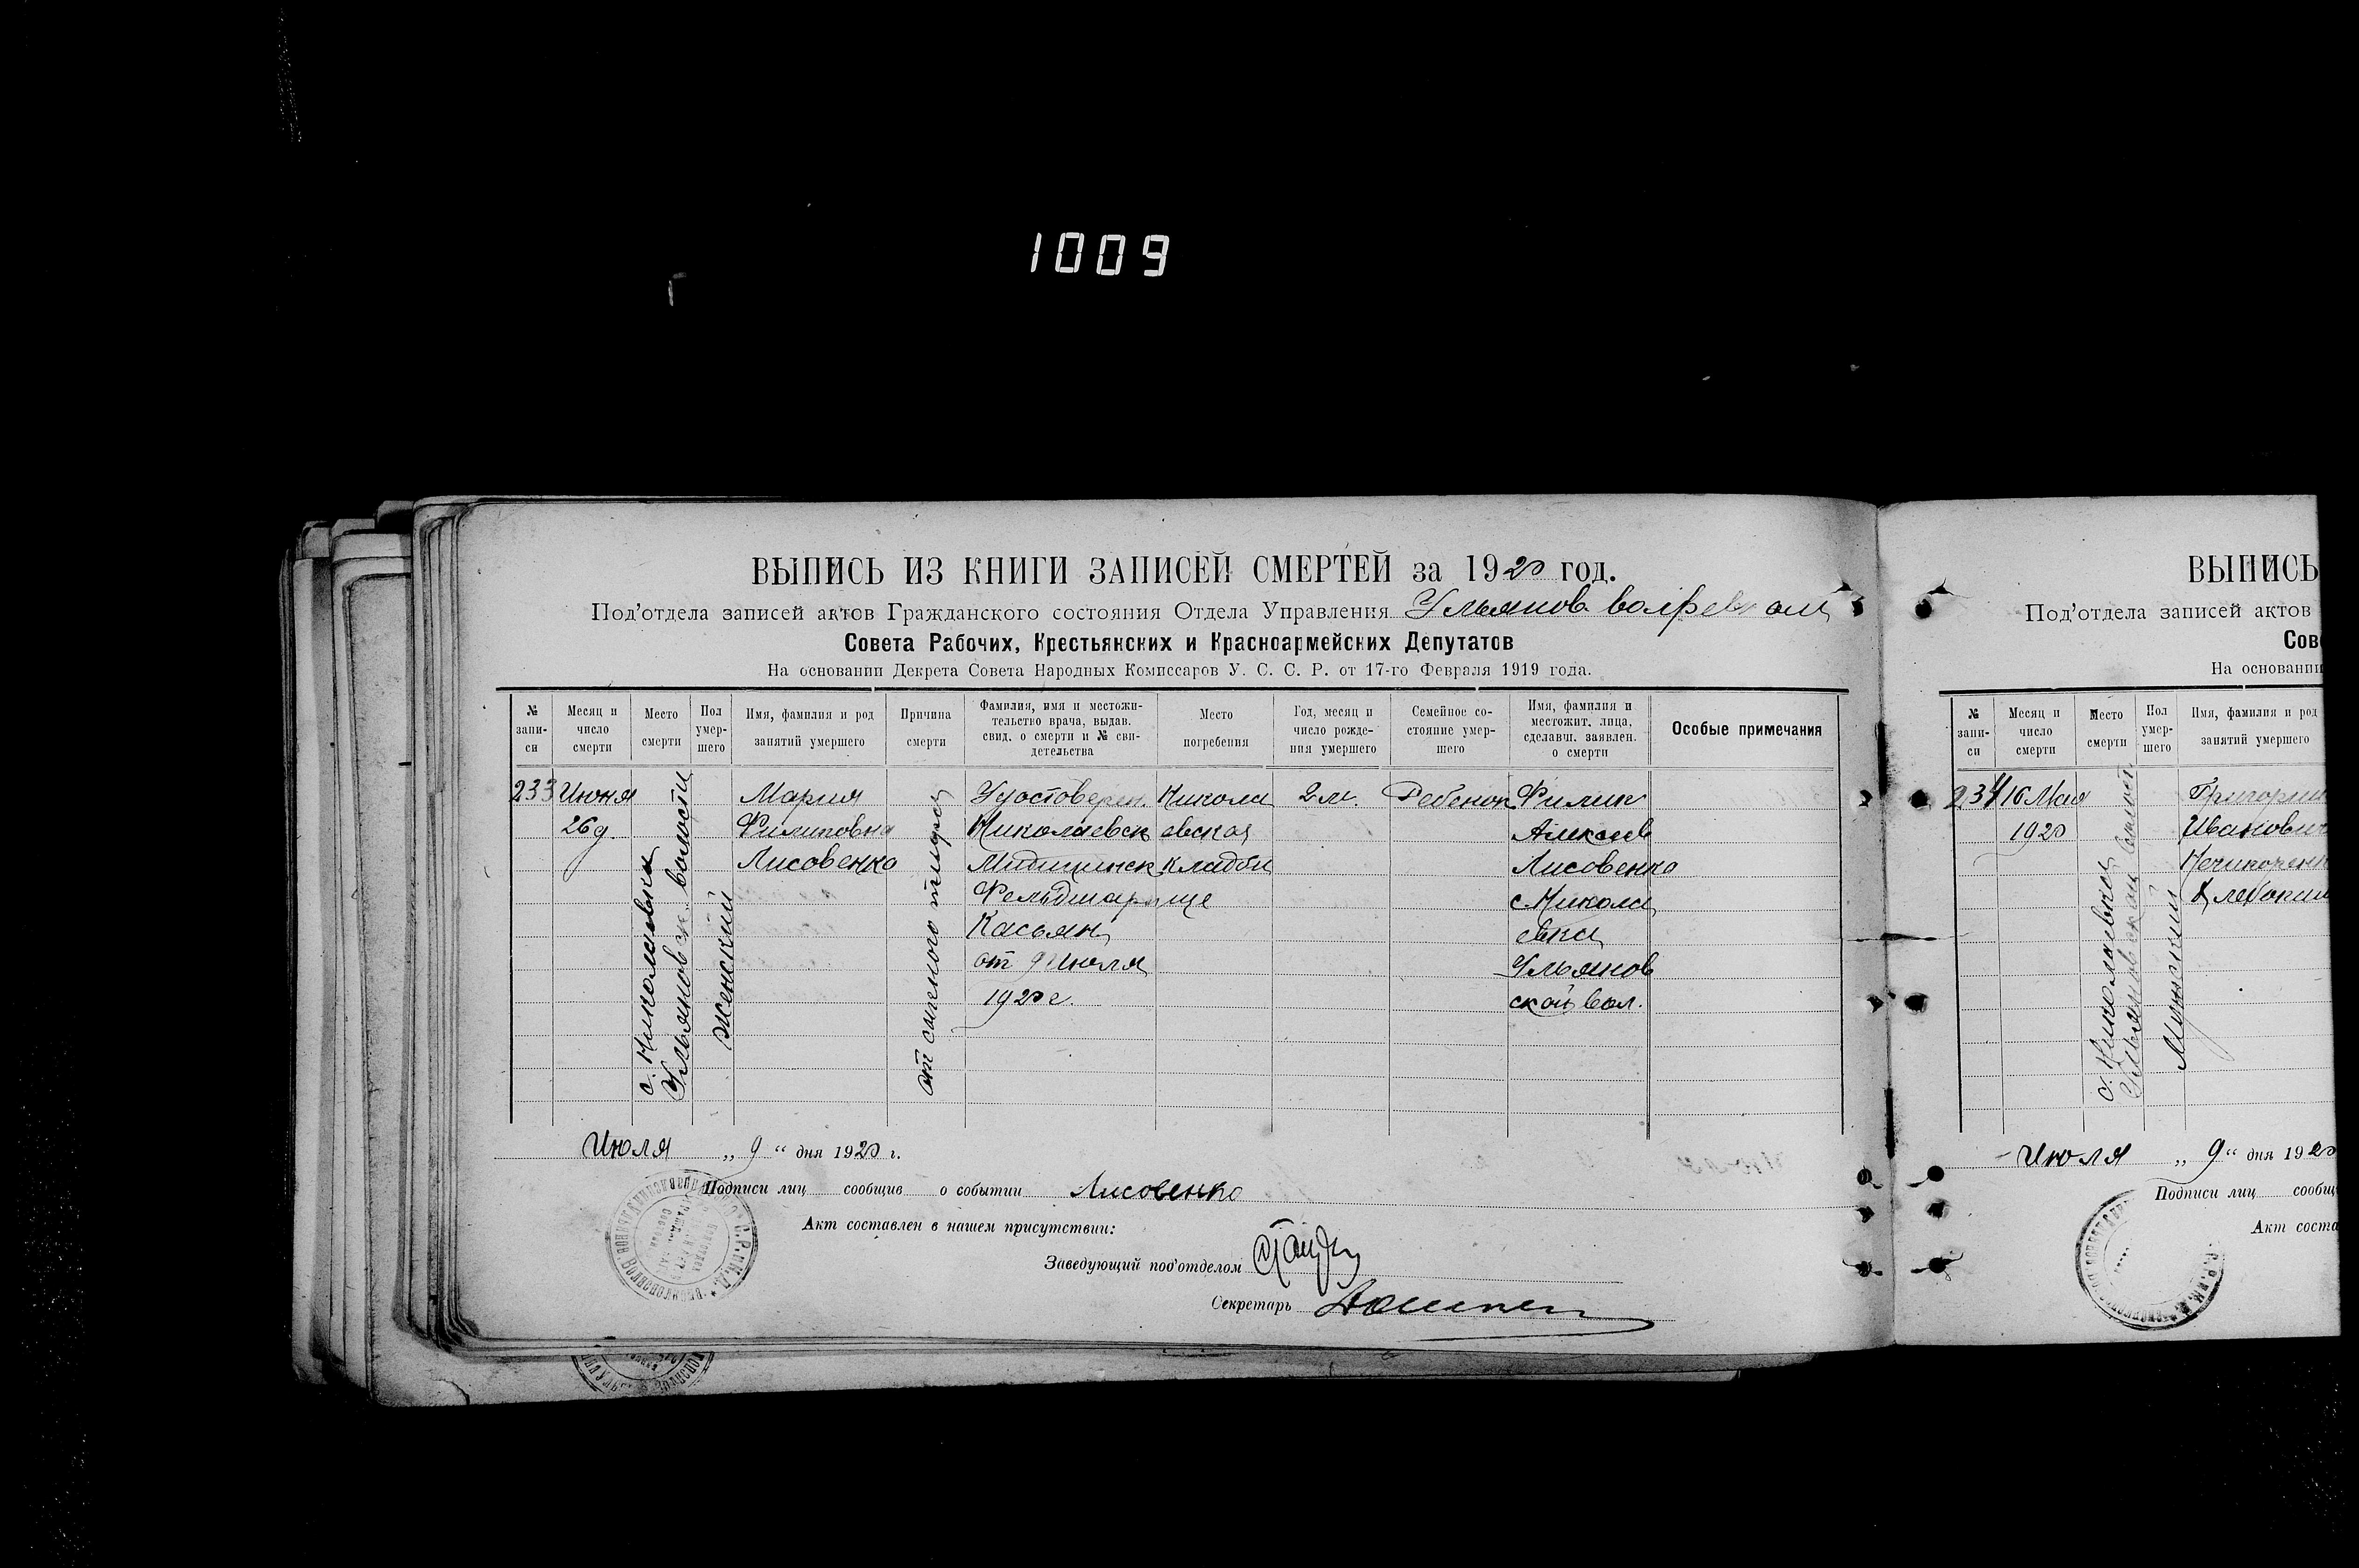 1009
ВЫПИСЬ ИЗ КНИГИ ЗАПИСЕЙ СМЕРТЕЙ за 1920 год.
Под'отдела записей актов Гражданского состояния Отдела Управления Ульянов волревком
Совета Рабочих, Крестьянских и Красноармейских Депутатов
На основании Декрета Совета Народных Комиссаров У. С. С. Р. от 17-го Февраля 1919 года.
№ запи- си
Месяц и число смерти
Место смерти
Пол умер- шего
Имя, фамилия и род занятий умершего
Причина смерти
Фамилия, имя и местожи- тельство врача, выдав. свид. о смерти и № сви- детельства
Место погребения
Год, месяц и число рожде- ния умершего
Семейное со- стояние умер- шего
Имя, фамилия и местожит. лица, сделавш. заявлен. о смерти
Особые примечания
233
Июня
26 д
с. Николаевка
Ульяновск. волости
женский
Мария
Филиповна
Лисовенко
от сыпного тифа
Удостоверен.
Николаевск
Медицинск
Фельдшера
Касьян
от 9 Июля
1920 г.
Никола
евская
кладби
ще
2 м.
Ребенок
Филип
Алексеев
Лисовенко
с. Никола
евка
Ульянов
ской вол.
Июля „ 9 “ дня 1920 г.
Подписи лиц сообщив о событии Лисовенко
Акт составлен в нашем присутствии:
Заведующий под'отделом
Секретарь
ВЫПИСЬ
Под'отдела записей актов
Сов
На основании
№ запи- си
Месяц и число смерти
Место смерти
Пол умер- шего
Имя, фамилия и род занятий умершего
234
16 Мая
1920
с. Николаевка
Ульяновской волост
Мужский
Григорий
Иванович
Нечипоренк
Июля „ 9 “ дня 1920
Подписи лиц сообщ
Акт соста